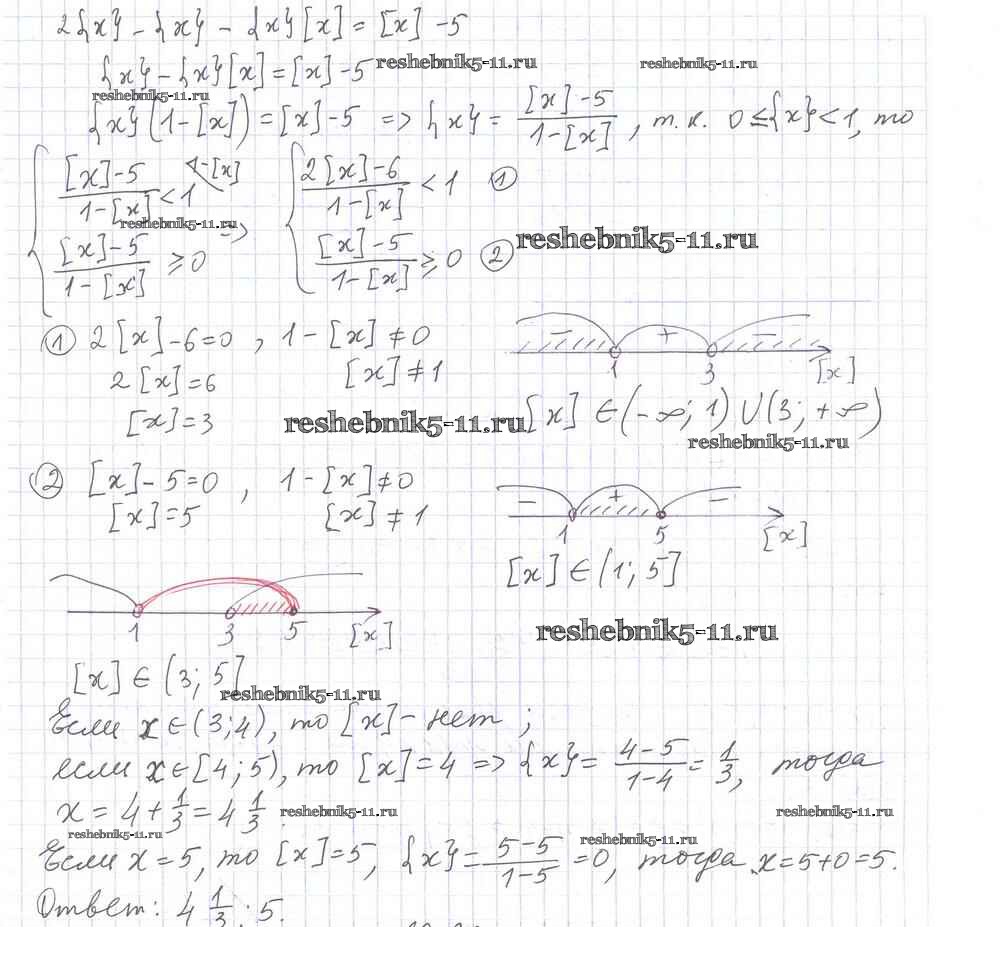 2{x} - {x} - {x}[x] = [x] - 5
{x} - {x}[x] = [x] - 5 reshebnik5-11.ru reshebnik5-11.ru
reshebnik5-11.ru
{x}(1-[x]) = [x]-5 => {x} = [x]-5 / 1-[x] , т.к. 0 ≤ {x} < 1, то
[x]-5 / 1-[x] < 1 1-[x] 2[x]-6 / 1-[x] < 1 ①
reshebnik5-11.ru =>
[x]-5 / 1-[x] ≥ 0 [x]-5 / 1-[x] ≥ 0 ② reshebnik5-11.ru
① 2[x]-6=0 , 1-[x] ≠ 0
2[x]=6 [x] ≠ 1
[x]=3
- + -
1 3 [x]
reshebnik5-11.ru [x] ∈ (-∞; 1) ∪ (3; +∞)
reshebnik5-11.ru
② [x]-5=0 , 1-[x] ≠ 0
[x]=5 [x] ≠ 1
- + -
1 5 [x]
[x] ∈ (1; 5]
1 3 5 [x]
reshebnik5-11.ru
[x] ∈ (3; 5] reshebnik5-11.ru
Если x ∈ (3;4), то [x] - нет ;
если x ∈ [4;5), то [x]=4 => {x} = 4-5 / 1-4 = 1/3, тогда
x = 4 + 1/3 = 4 1/3 reshebnik5-11.ru reshebnik5-11.ru
reshebnik5-11.ru reshebnik5-11.ru
Если x=5, то [x]=5, {x} = 5-5 / 1-5 = 0, тогда x=5+0=5.
Ответ: 4 1/3; 5.